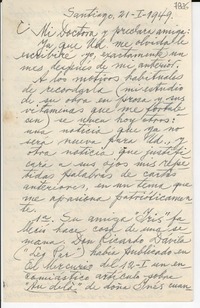 7835
Santiago, 21-I-1949.
Mi Doctora y preclara amiga:
Ya que Ud. me olvida, le
escribiré yo, exactamente un
mes después de mi anterior.
A los motivos habituales
de recordarla (mi estudio
de su obra en prosa, y sus
vitaminas que me fortale
cen) se unen hoy otros:
una noticia que ya no
será nueva para Ud., y
otra noticia que justifi
cará a sus ojos mis repe
tidas palabras de cartas
anteriores, en un tema que
me apasiona patrióticamen
te.
Su amiga "Iris" fa
lleció hace cosa de una se
mana. Don Ricardo Dávila
("Leo Par") había publicado en
El Mercurio del 12-I un en
comiástico artículo sobre
"Au delà" de doña Inés cuan